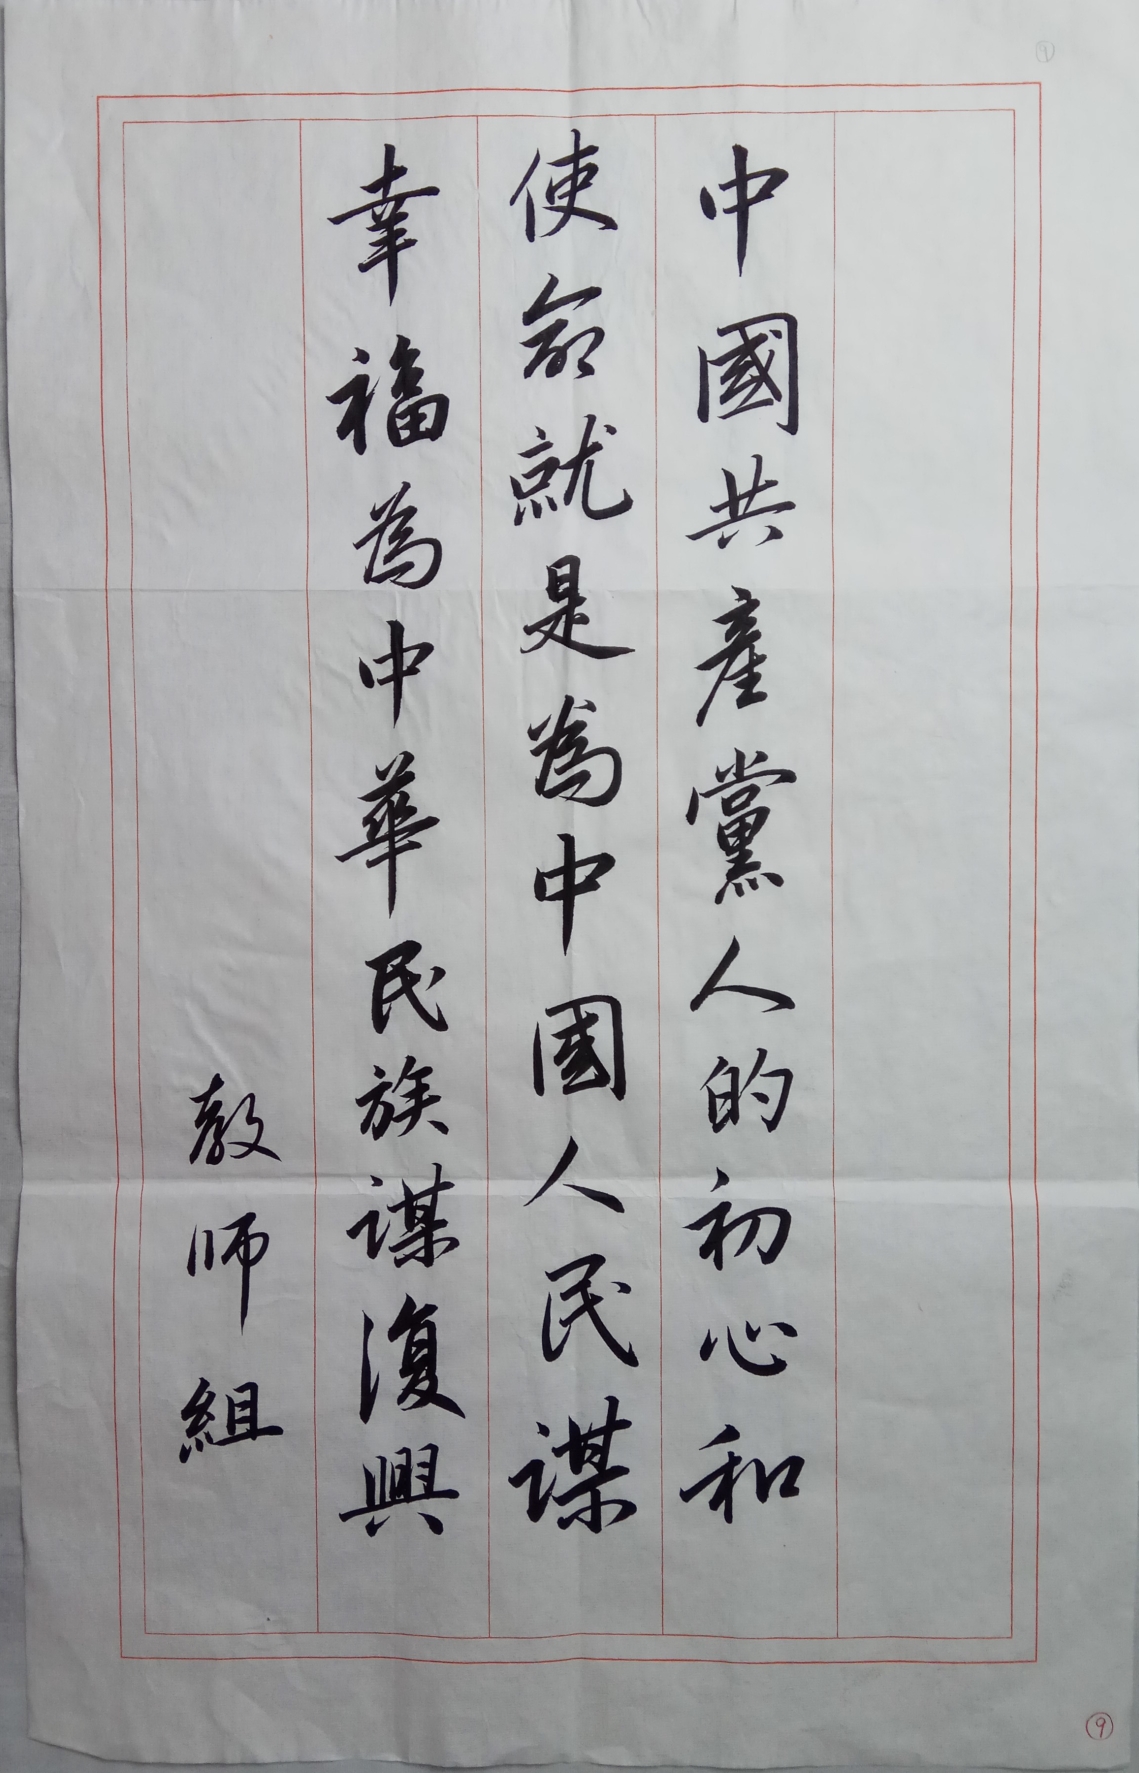 中國共產黨人的初心和
使命就是為中國人民謀
幸福為中華民族謀復興
教師組
9
9